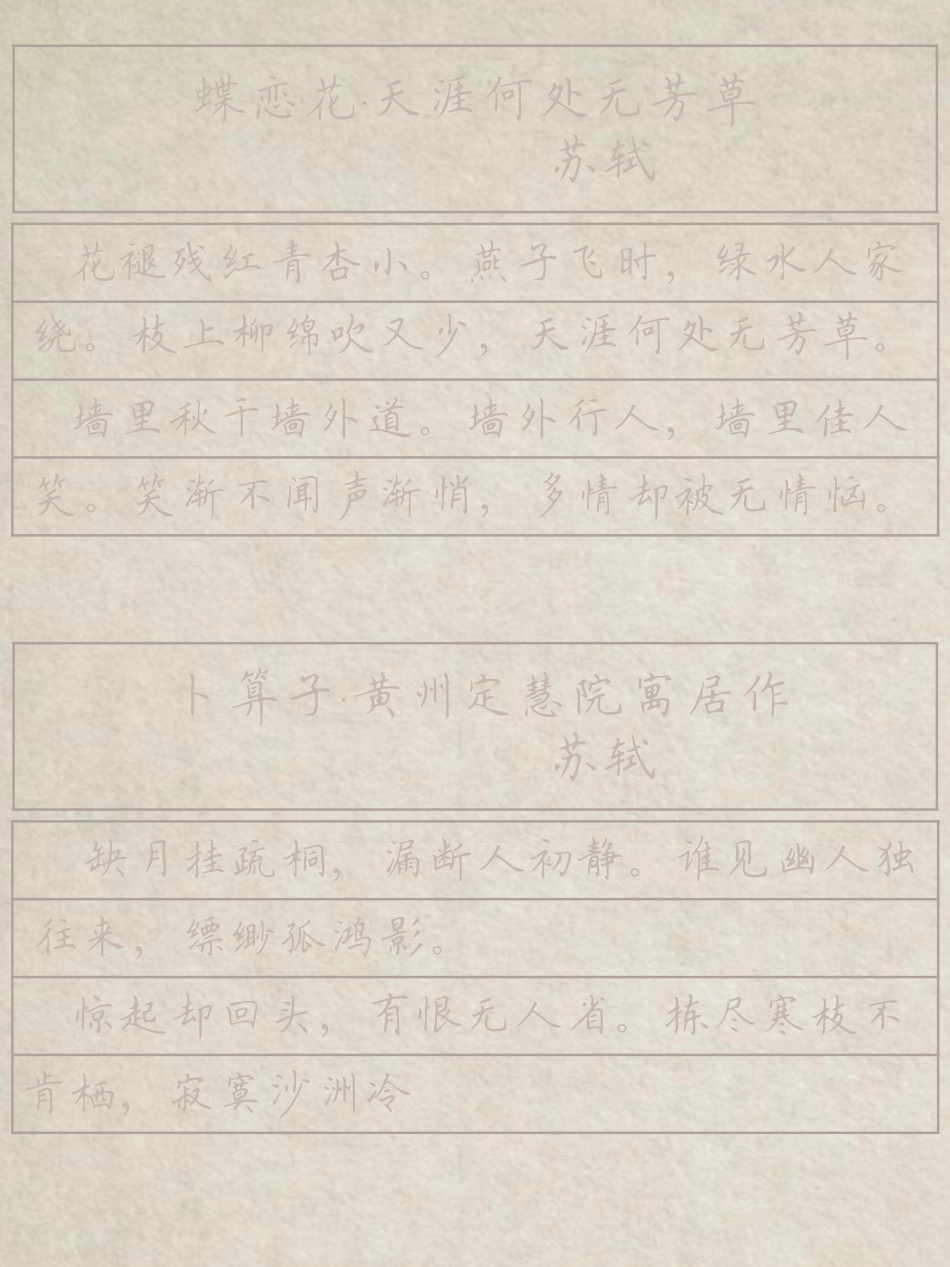 蝶恋花·天涯何处无芳草
苏轼
花褪残红青杏小。燕子飞时，绿水人家
绕。枝上柳绵吹又少，天涯何处无芳草。
墙里秋千墙外道。墙外行人，墙里佳人
笑。笑渐不闻声渐悄，多情却被无情恼。
卜算子·黄州定慧院寓居作
苏轼
缺月挂疏桐，漏断人初静。谁见幽人独
往来，缥缈孤鸿影。
惊起却回头，有恨无人省。拣尽寒枝不
肯栖，寂寞沙洲冷